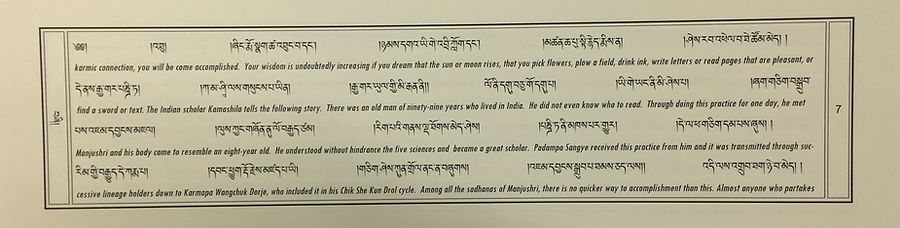 ༄༅།། །འཐུ། །ཞིང་རྨོ་སྣག་ཚ་འཐུང་བ་དང་ །ཉམས་དགའ་ཡི་གེ་འབྲི་ཀློག་དང་། །མཚན་ཆ་པུ་སྟི་རྙེད་རྨིས་ན། །ཤེས་རབ་འཕེལ་བ་ཐེ་ཚོམ་མེད། །
karmic connection, you will be come accomplished. Your wisdom is undoubtedly increasing if you dream that the sun or moon rises, that you pick flowers, plow a field, drink ink, write letters or read pages that are pleasant, or
དེ་ནས་རྒྱ་གར་པཎྜི་ཏ། །ཀ་མ་ཤི་ལས་གསུངས་པ་ཡིན། །རྒྱ་གར་ཡུལ་གྱི་མི་རྒན་ནི། །ལོ་ནི་དགུ་བཅུ་གོ་དགུ་པ། །ཡི་གེ་ཡང་ནི་མི་ཤེས་པ། །ཞག་གཅིག་བསྒྲུབ་
find a sword or text. The Indian scholar Kamashila tells the following story. There was an old man of ninety-nine years who lived in India. He did not even know who to read. Through doing this practice for one day, he met
7
པས་འཇམ་དབྱངས་མཇལ། །ལུས་ཀྱང་གཞོན་ནུ་ལོ་བརྒྱད་ཙམ། །རིག་པའི་གནས་ལྔ་ཐོགས་མེད་ཤེས། །པཎྜི་ཏ་ནི་མཁས་པར་གྱུར། །དེ་ལ་ཕ་གཅིག་དམ་པས་ཞུས། །
Manjushri and his body came to resemble an eight-year old. He understood without hindrance the five sciences and became a great scholar. Padampa Sangye received this practice from him and it was transmitted through suc-
རིམ་གྱི་བརྒྱུད་དེ་ཀརྨ་པ། །དབང་ཕྱུག་རྡོ་རྗེས་མཛད་པ་ཡི། །གཅིག་ཤེས་ཀུན་གྲོལ་ནང་ན་བཞུགས། །འཇམ་དབྱངས་སྒྲུབ་པ་ཐམས་ཅད་ལས། །འདི་ལས་འགྲུབ་ཐག་ཉེ་བ་མེད། །
cessive lineage holders down to Karmapa Wangchuk Dorje, who included it in his Chik She Kun Drol cycle. Among all the sadhanas of Manjushri, there is no quicker way to accomplishment than this. Almost anyone who partakes